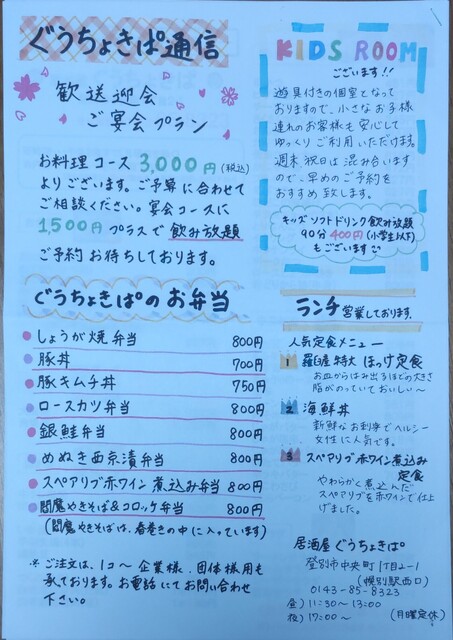 ぐうちょきぱ通信
歓送迎会
ご宴会プラン
お料理コース 3,000円(税込)
よりございます。ご予算に合わせて
ご相談ください。宴会コースに
1,500円プラスで飲み放題
ご予約お待ちしております。
ぐうちょきぱのお弁当
しょうが焼弁当 800円
豚丼 700円
豚キムチ丼 750円
ロースカツ弁当 800円
銀鮭弁当 800円
めぬき西京漬弁当 800円
スペアリブ赤ワイン煮込み弁当 800円
閻魔やきそば&コロッケ弁当 800円
(閻魔やきそばは、春巻きの中に入っています)
*ご注文は、1コ〜 企業様、団体様用も
承ております。お電話にてお問い合わせ
下さい。
KIDS ROOM
ございます!!
遊具付きの個室となって
おりますので、小さなお子様
連れのお客様も安心して
ゆっくりご利用いただけます。
週末 祝日は 混み合います
ので、早めのご予約を
おすすめ致します。
キッズソフトドリンク飲み放題
90分 400円(小学生以下)
もございます
ランチ営業しております。
人気定食メニュー
1 羅臼産特大 ほっけ定食
お皿からはみ出るほどの大きさ
脂がのっていておいし〜
2 海鮮丼
新鮮なお刺身でヘルシー
女性に人気です。
3 スペアリブ赤ワイン煮込み
定食
やわらかく煮込んだ
スペアリブを赤ワインで仕上
げました。
居酒屋 ぐうちょきぱ
登別市中央町1丁目2-1
(幌別駅西口)
0143-85-8323
昼)11:30〜13:00
夜)17:00〜 (月曜定休)